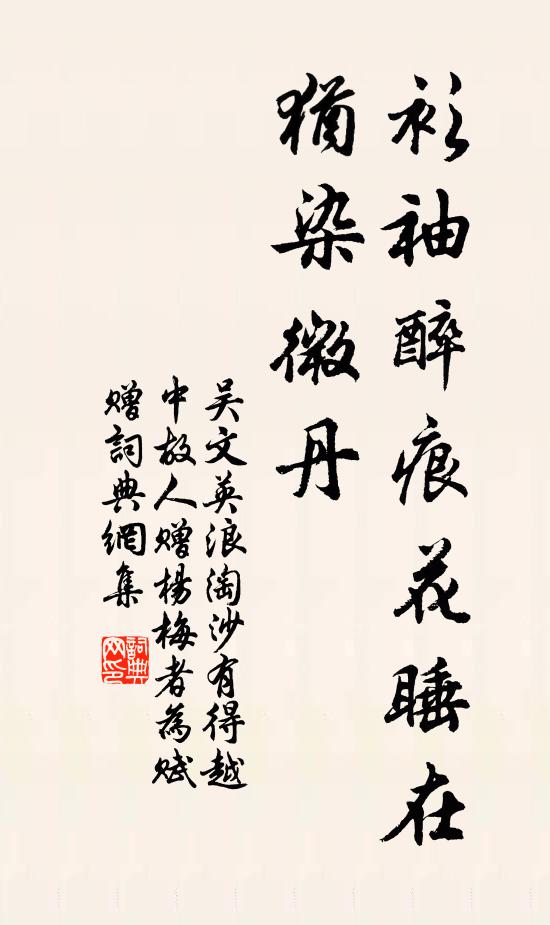 衫袖醉痕花睡在
猶染微丹
吴文英浪淘沙有得越
中故人赠楊梅者為赋
赠詞典網集
詞典网印